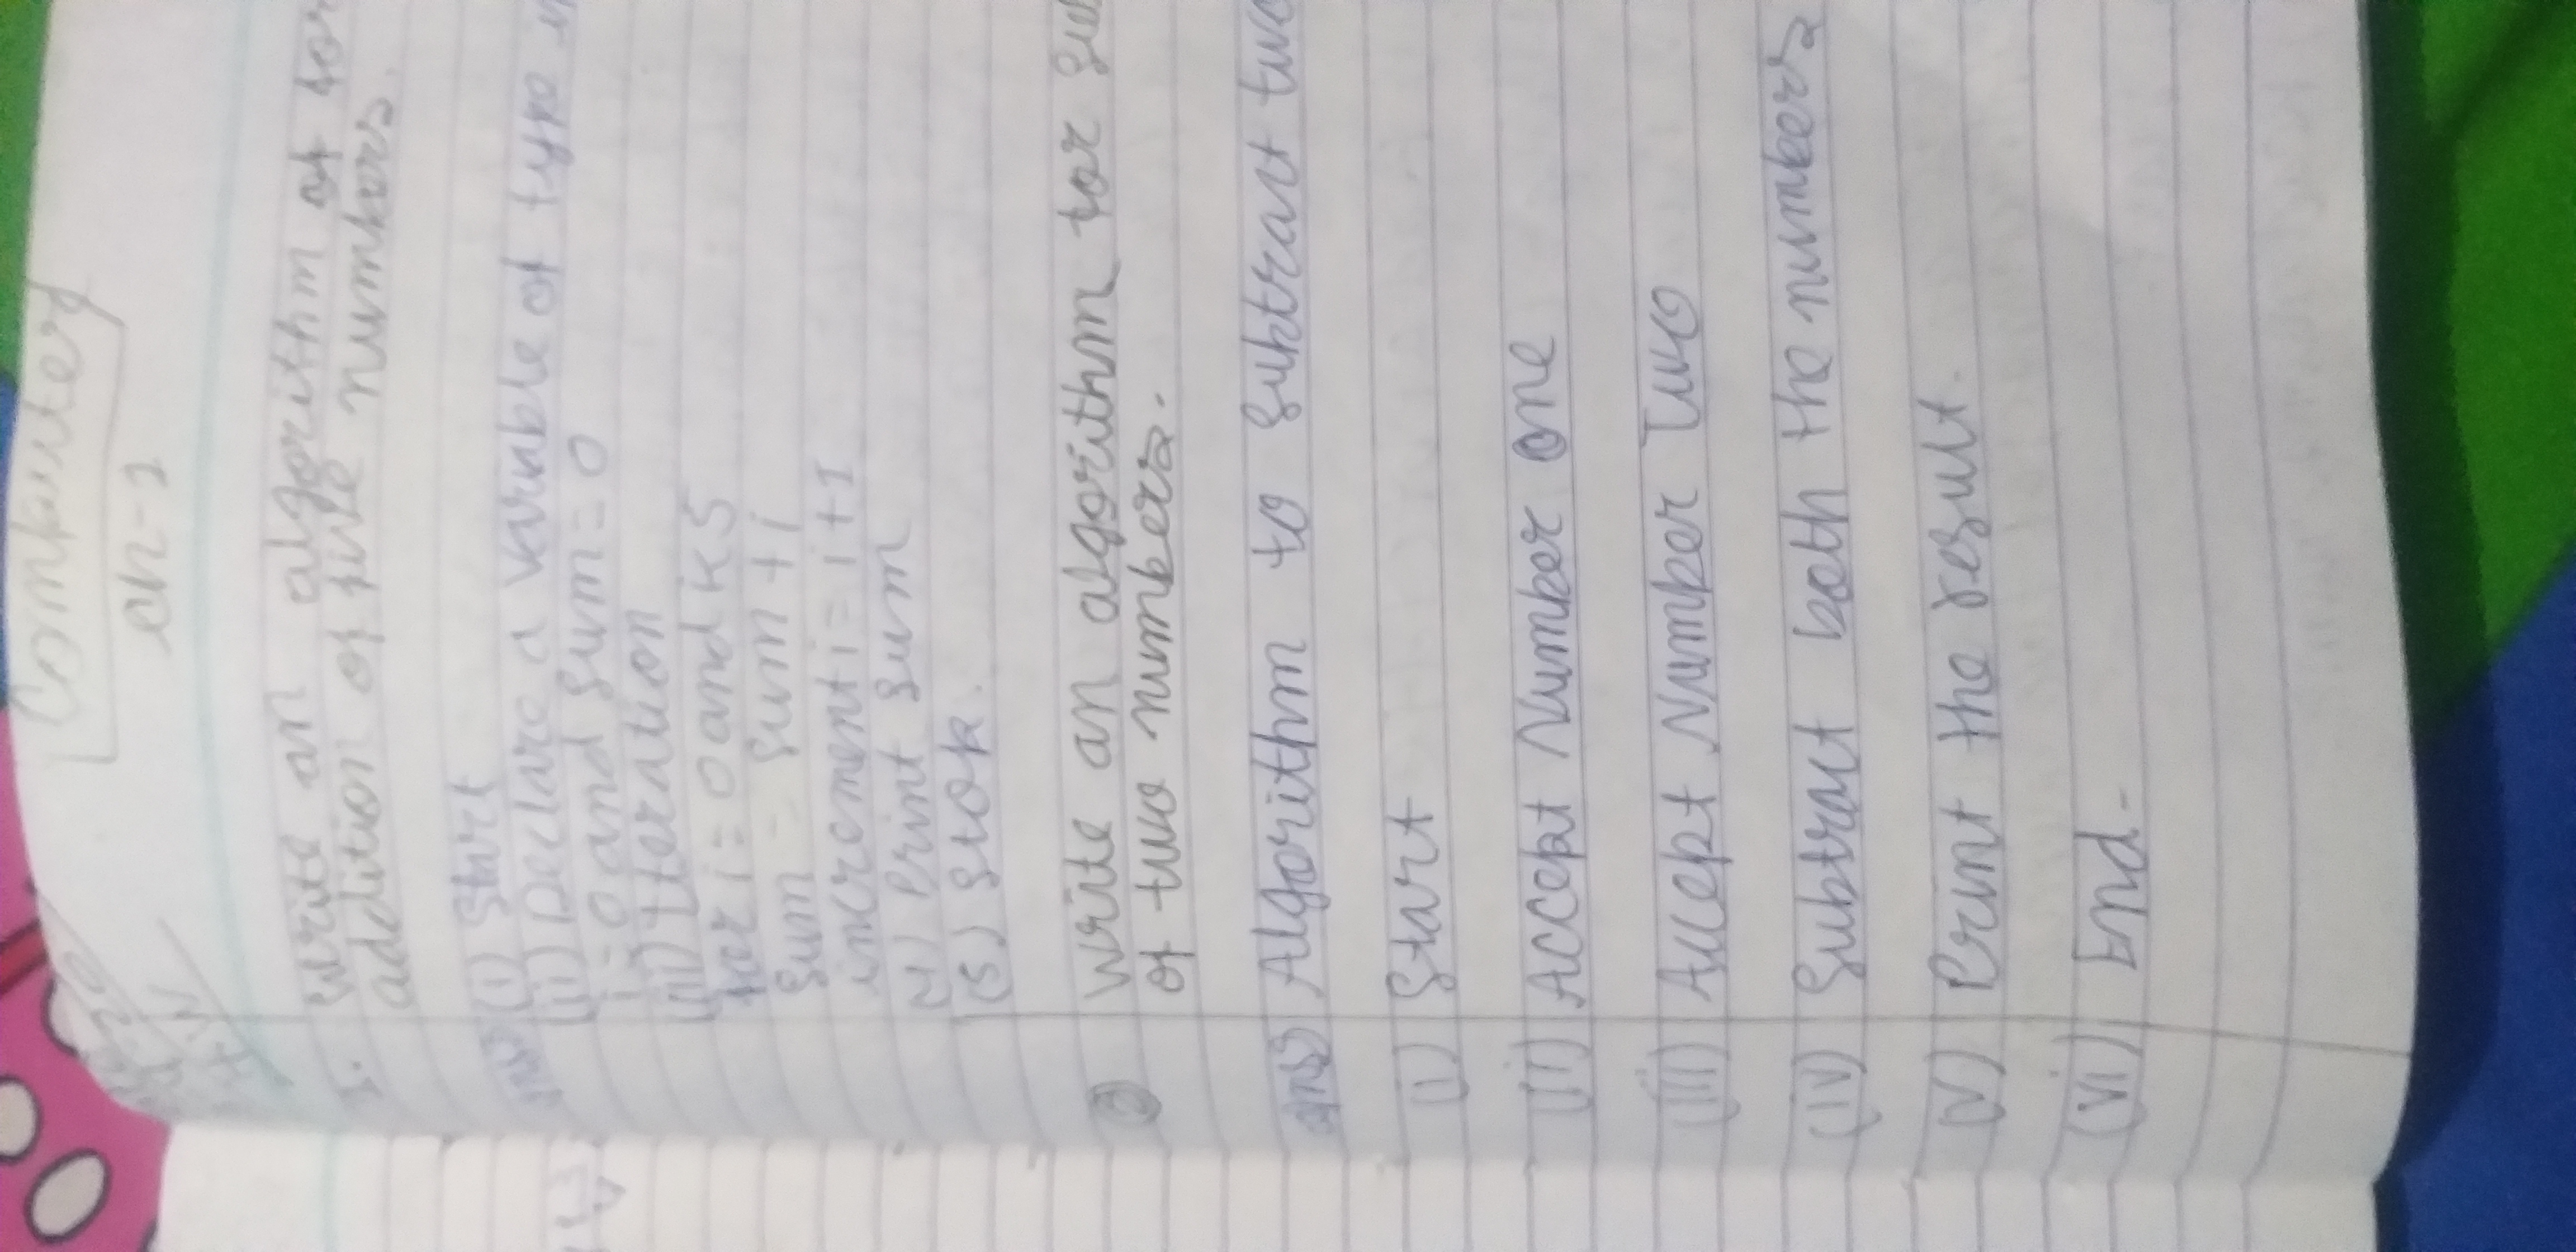 Computer
ch-1
H.W
1. Write an algorithm of for
addition of five numbers.
ans (i) Start
(ii) Declare a variable of type
i=0 and Sum=0
(iii) Iteration
for i=0 and i<5
Sum = Sum + i
increment i = i+1
(4) Print Sum
(5) Stop.
2 Write an algorithm for
of two numbers.
ans Algorithm to Subtract two
(i) Start
(ii) Accept Number one
(iii) Accept Number Two
(iv) Subtract both the numbers
(v) Print the result.
(vi) End-